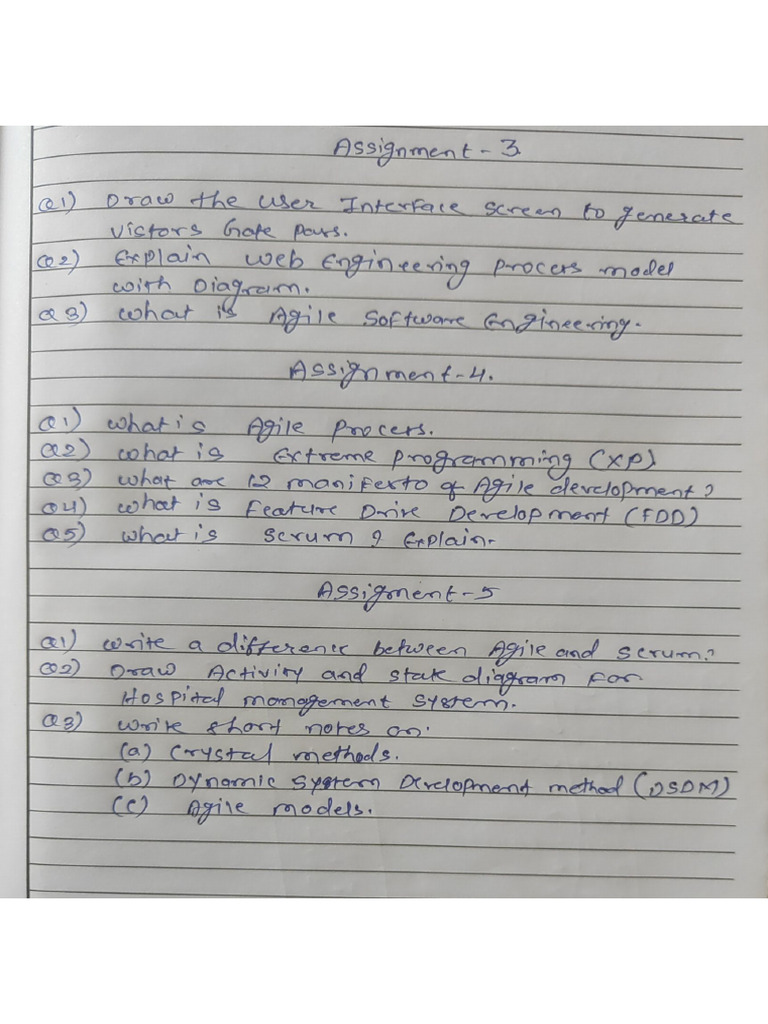 Assignment - 3
Q1) Draw the User Interface screen to generate
Vistors Gate Pass.
Q2) Explain Web Engineering Process model
with Diagram.
Q3) What is Agile Software Engineering.
Assignment-4.
Q1) What is Agile Process.
Q2) What is Extreme Programming (XP)
Q3) What are 12 manifesto of Agile development?
Q4) What is Feature Drive Development (FDD)
Q5) What is Scrum? Explain.
Assigment-5
Q1) Write a difference between Agile and Scrum?
Q2) Draw Activity and state diagram For
Hospital management System.
Q3) Write short notes on:
(a) Crystal methods.
(b) Dynamic System Development method (DSDM)
(c) Agile models.